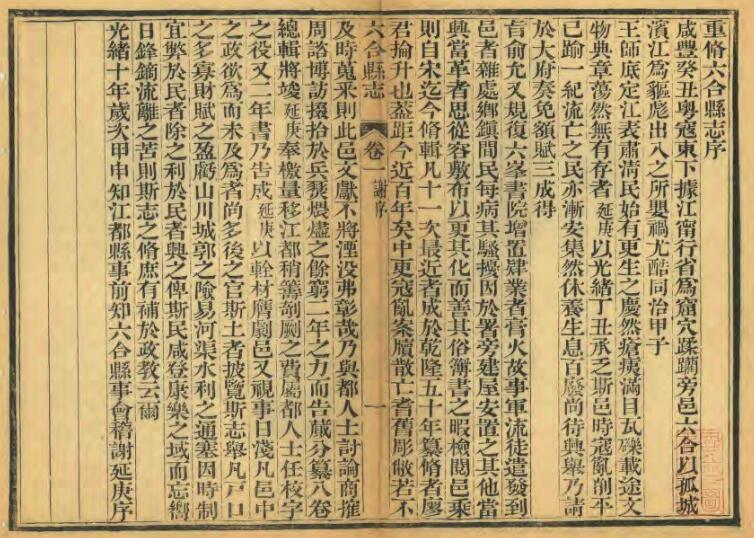 重脩六合縣志序
咸豐癸丑粤寇東下據江甯行省爲窟穴蹂躪旁邑六合以孤城
濱江爲豼彪出入之所嬰禍尤酷同治甲子
王師底定江表肅淸民始有更生之慶然瘡痍滿目瓦礫載途文
物典章蕩然無有存者延庚以光緒丁丑承乏斯邑時寇亂削平
已踰一紀流亡之民亦漸安集然休養生息百廢尚待興舉乃請
於大府奏免額賦三成得
旨俞允又規復六峯書院增置肄業者膏火故事軍流徒遣發到
邑者雜處鄉鎭間民每病其騷擾因於署旁建屋安置之其他當
興當革者思從容敷布以更其化而善其俗簿書之暇檢閱邑乘
則自宋迄今脩輯凡十一次最近者成於乾隆五十年纂脩者廖
君掄升也葢距今近百年矣中更寇亂案牘散亡耆舊彫敝若不
六合縣志 卷一 謝序 一
及時蒐采則此邑文獻不將湮没弗彰哉乃與都人士討論商搉
周諮博訪掇拾於兵燹煨燼之餘窮二年之力而告蕆分纂八卷
總輯將竣延庚奉檄量移江都稍籌剞劂之費屬都人士任校字
之役又二年書乃告成延庚以輇材膺劇邑又視事日淺凡邑中
之政欲爲而未及爲者尚多後之官斯土者披覽斯志舉凡戸口
之多寡財賦之盈虧山川城郭之險易河渠水利之通塞因時制
宜弊於民者除之利於民者興之俾斯民咸登康樂之域而忘嚮
日鋒鏑流離之苦則斯志之脩庶有補於政教云爾
光緒十年歲次甲申知江都縣事前知六合縣事會稽謝延庚序